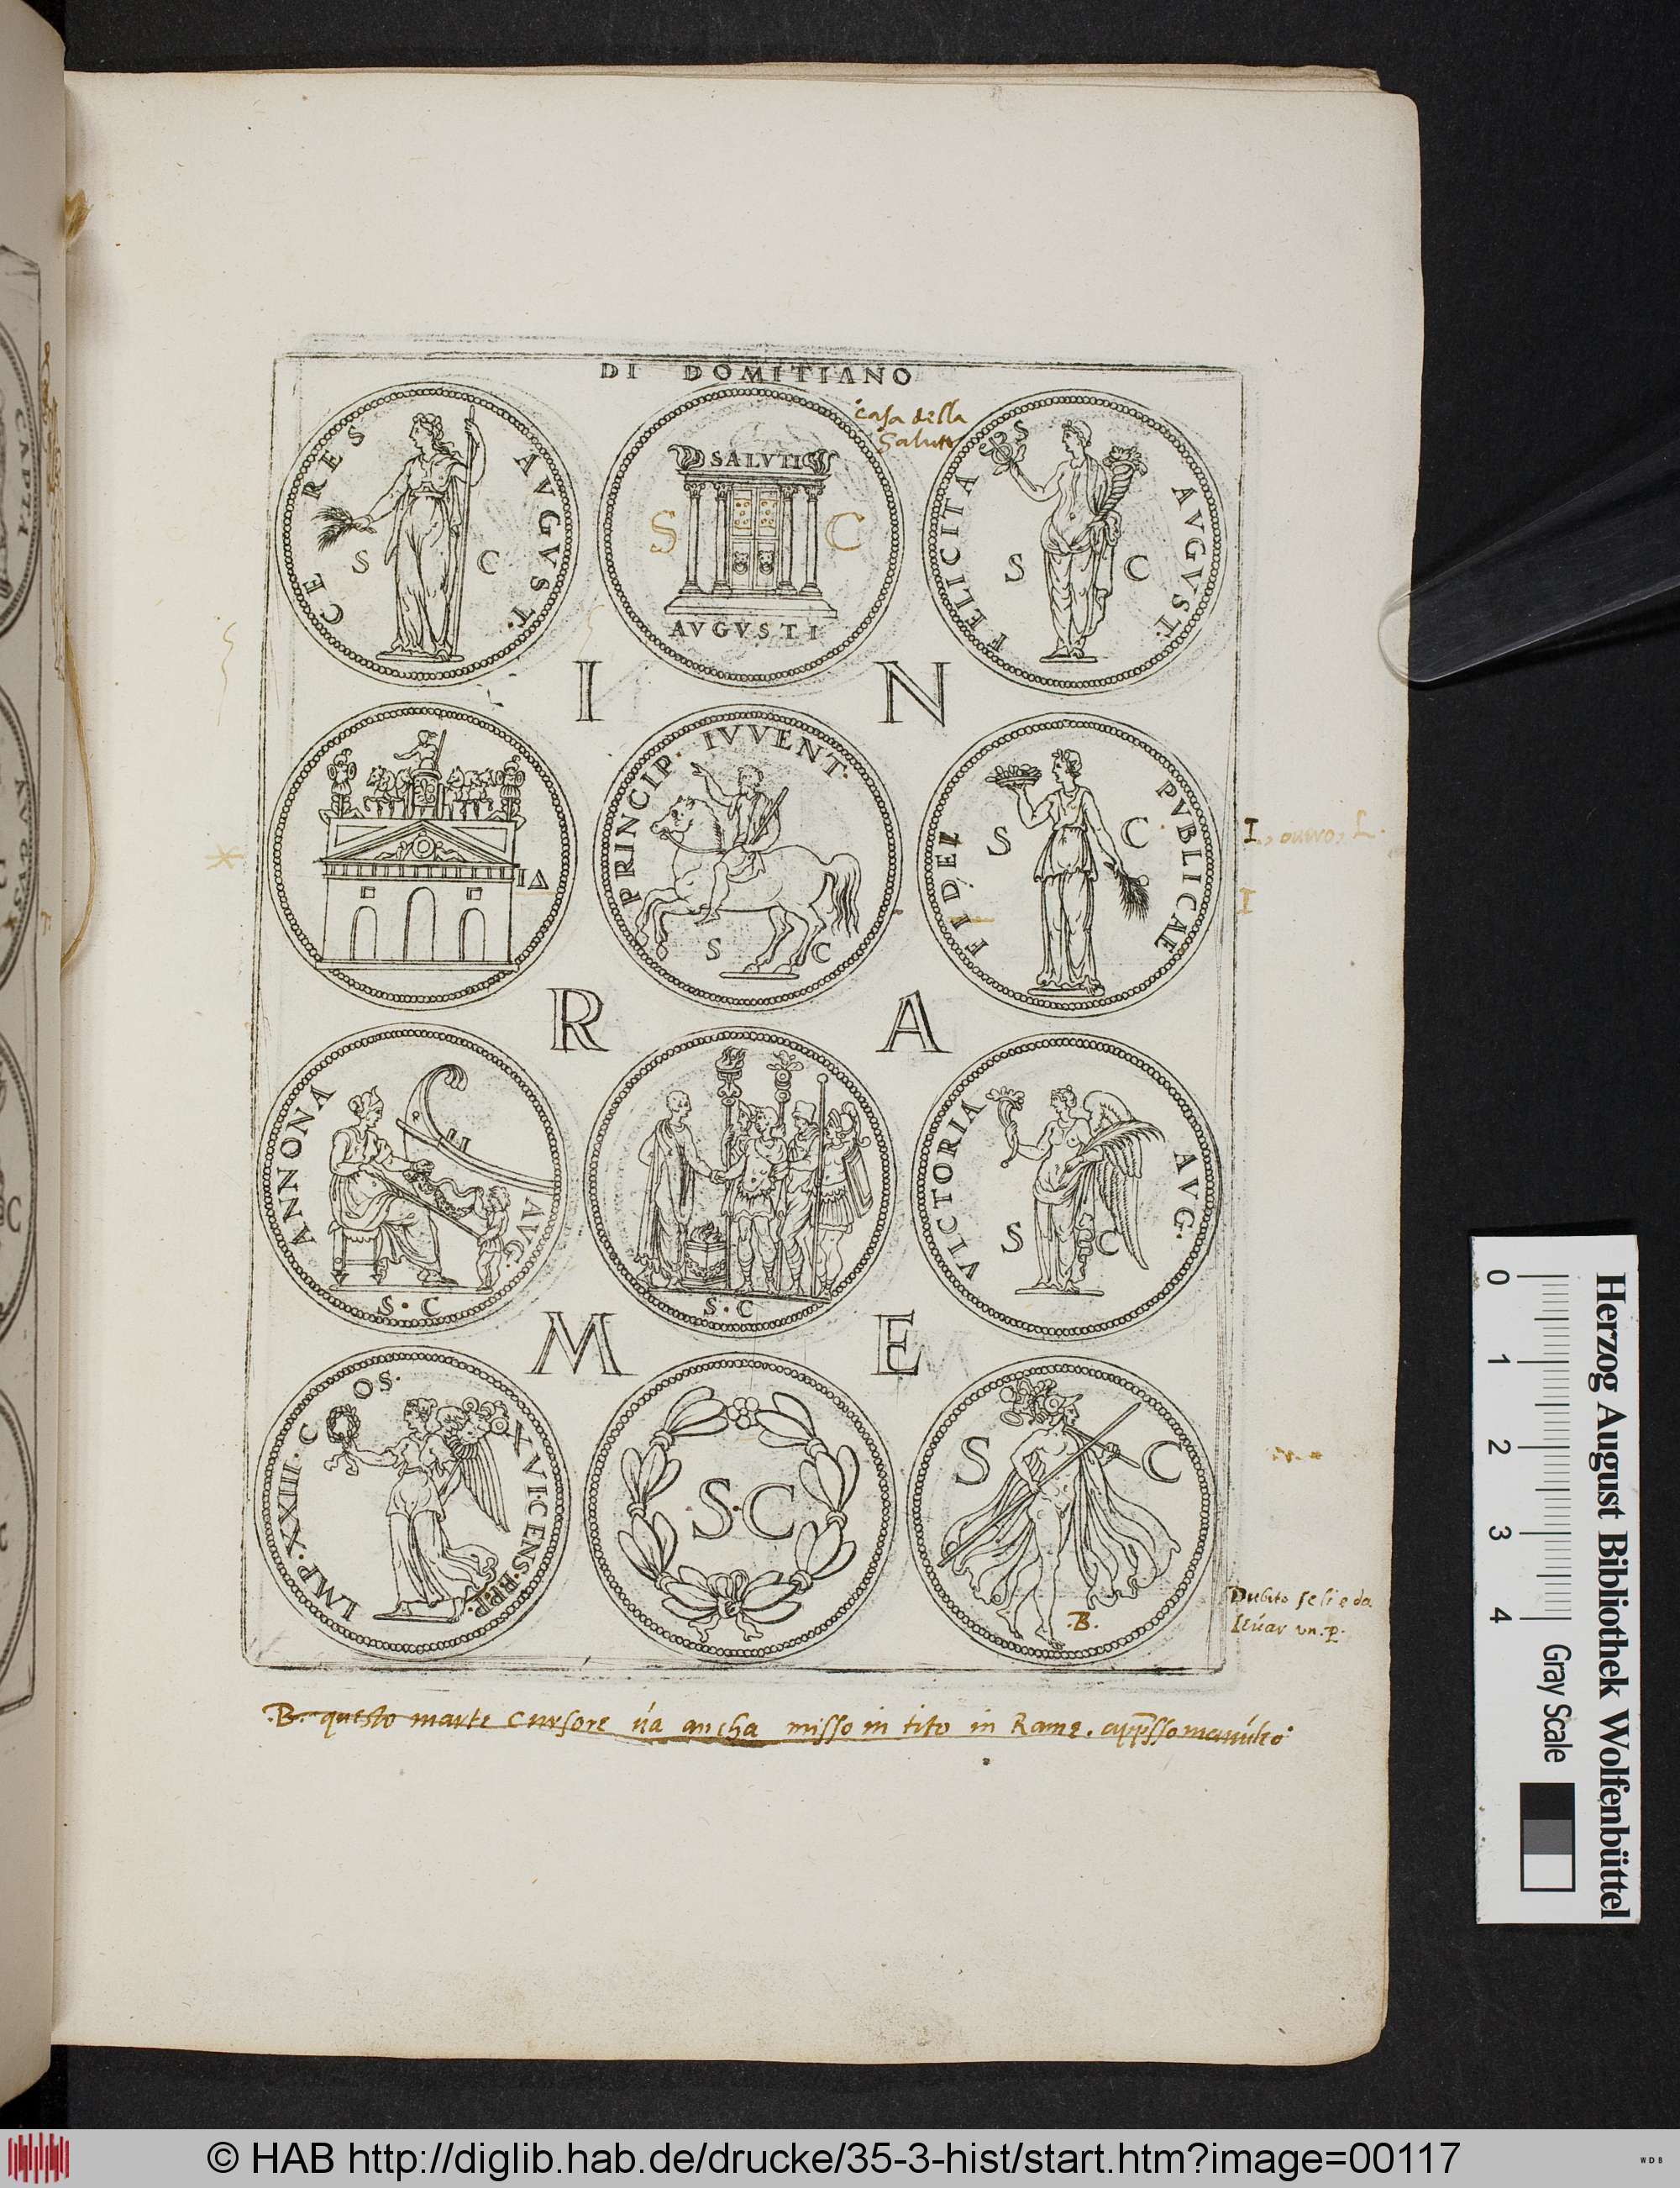 DI DOMITIANO
CERES AVGVST.
S C
SALVTI
S C
AVGVSTI
casa della
Salute
FELICITA S AVGVST.
S C
I N
IΔ
PRINCIP. IVVENT.
S C
FIDEI PVBLICAE
S C
I, ouero, L.
I
R A
ANNONA AVG.
S. C
S. C
VICTORIA AVG.
S C
M E
IMP. XXIII. COS. XVI. CENS. P. P.P.
S. C
S C
.B.
Dubito se li e da
leuar un. P.
.B. questo marte cursore ua ancha misso in tito in Rame.
CAPTI
AVGVS
C
Herzog August Bibliothek Wolfenbüttel
0 1 2 3 4
Gray Scale
© HAB http://diglib.hab.de/drucke/35-3-hist/start.htm?image=00117
WDB